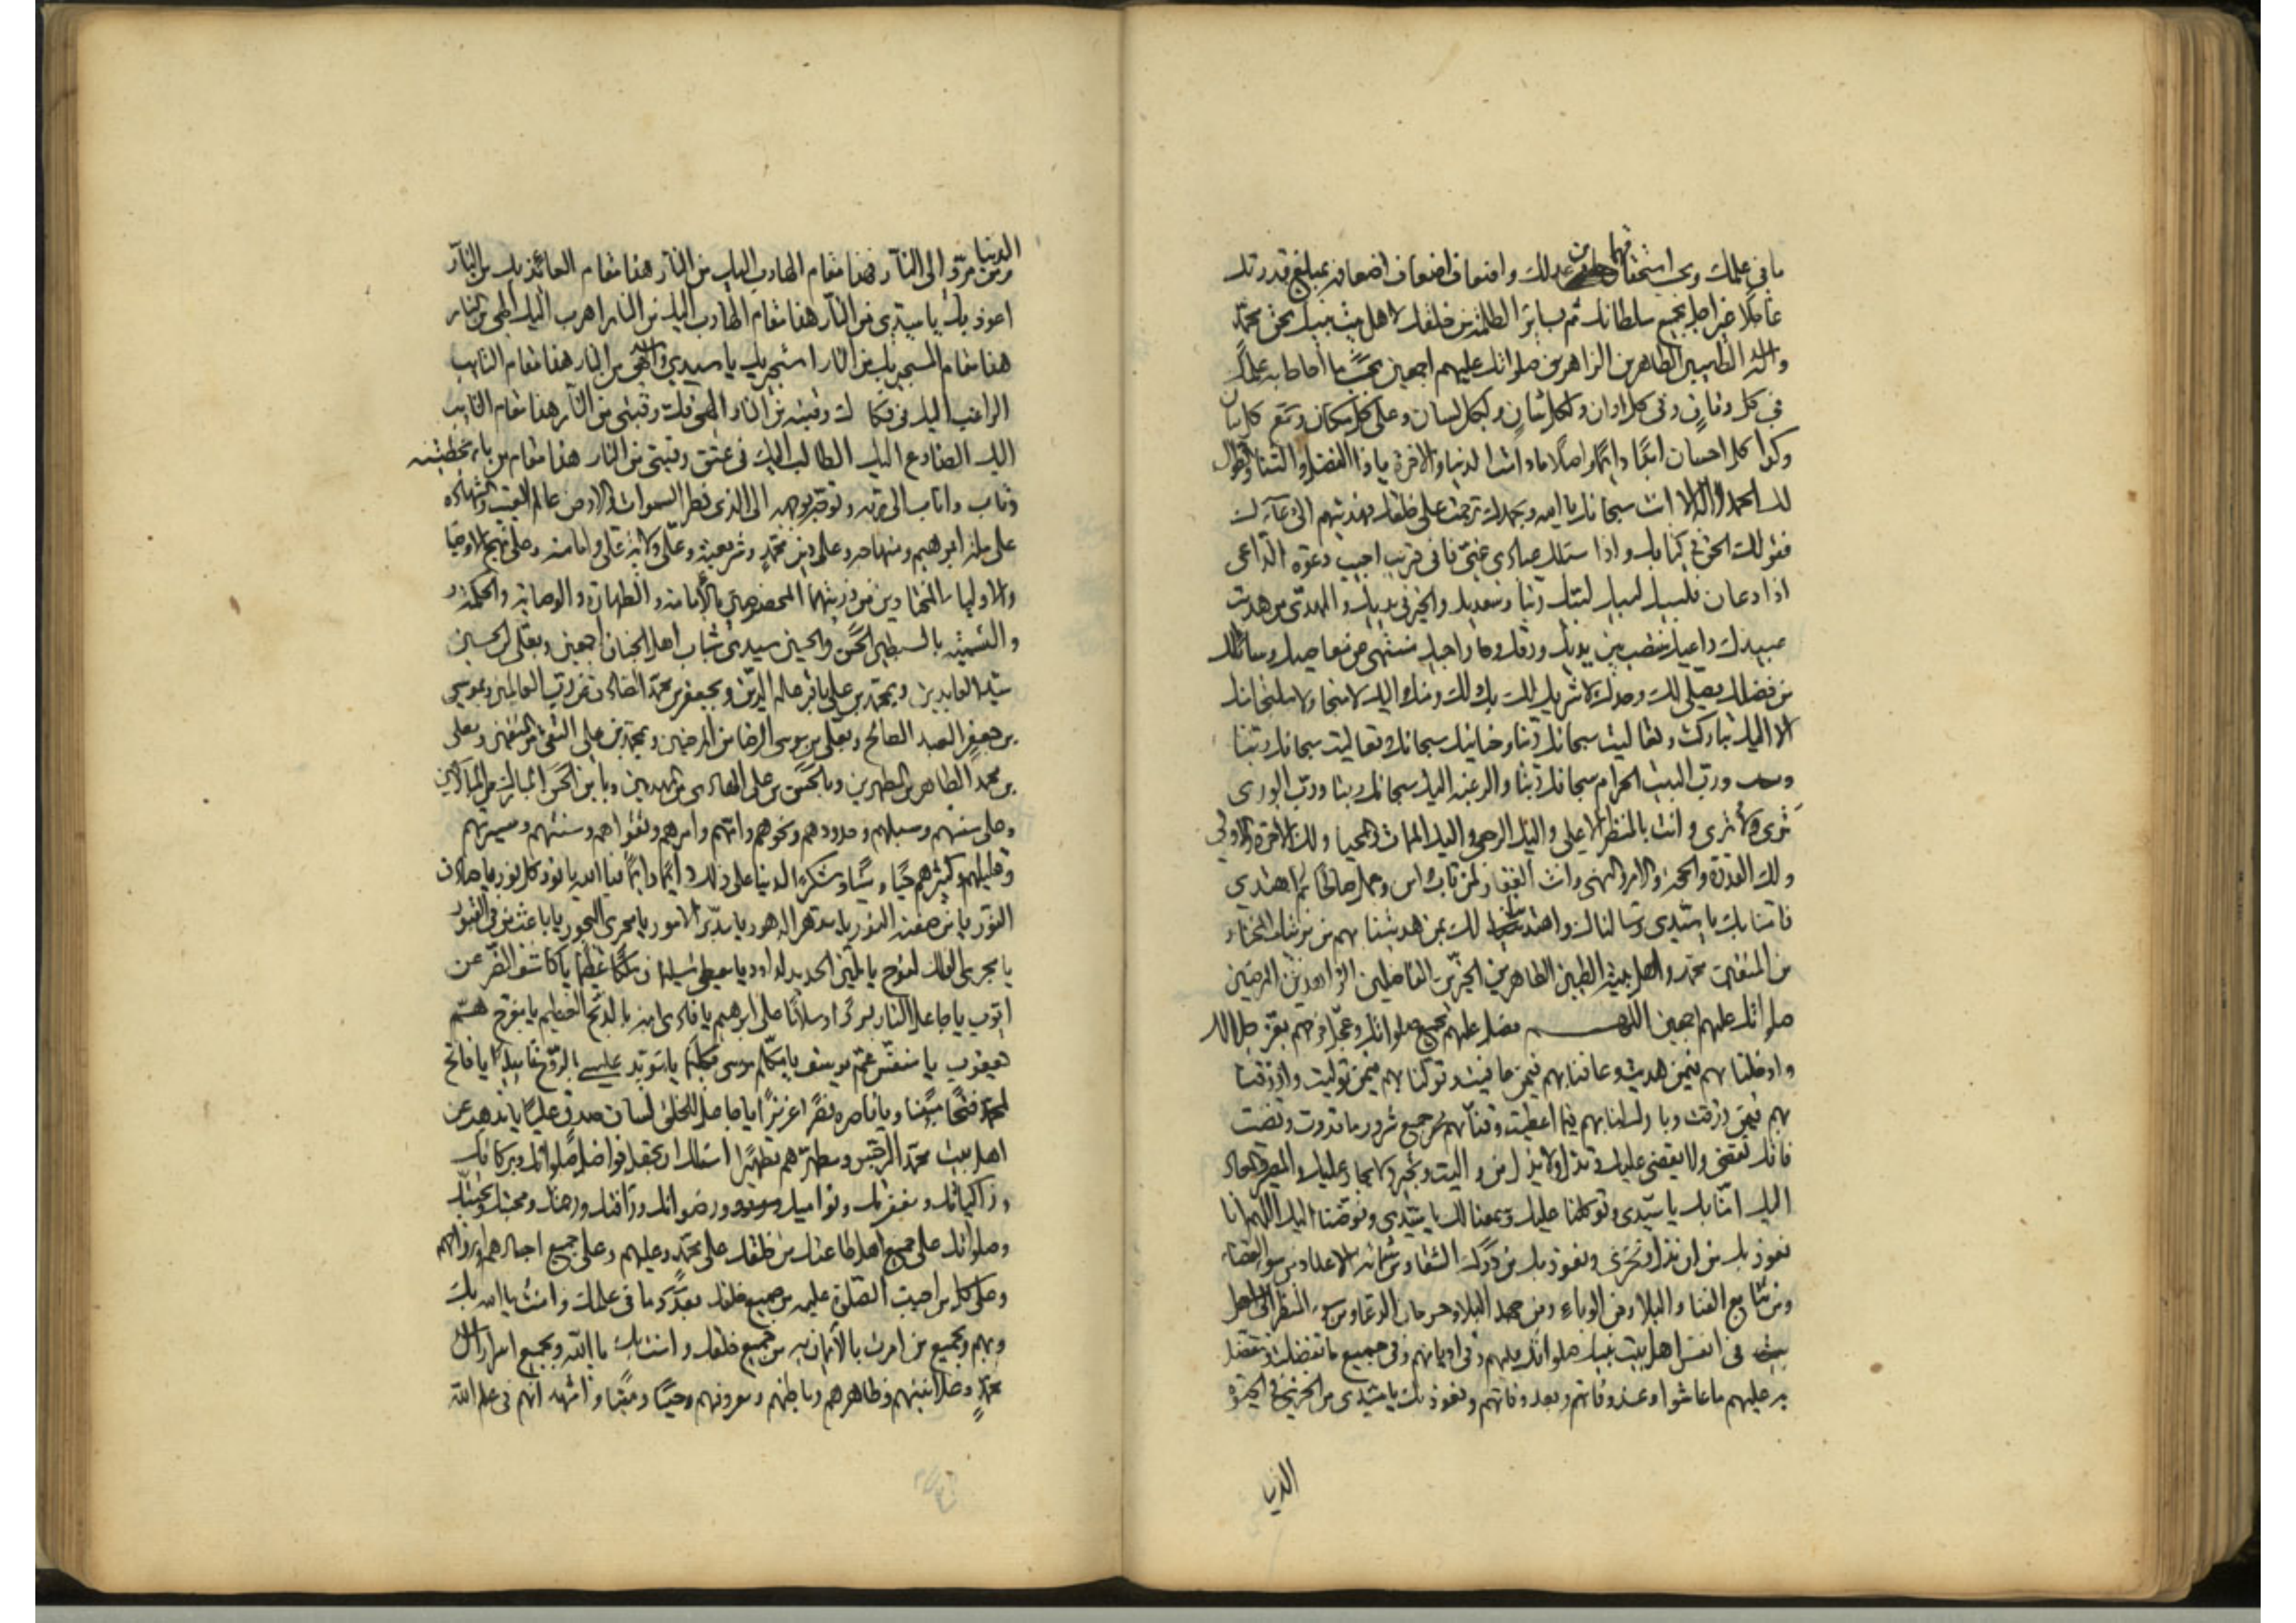 ما في علمك وبحد استحقاقهما من عدلك واضعاف اضعاف اضعافه بمبلغ قدرتك
عاجلا غير اجل بجميع سلطانك ثم بسائر الظلمة من خلقك لاهل بيت نبيك بحق محمد
واله الطيبين الطاهرين الزاهرين صلواتك عليهم اجمعين بحسب ما احاط به علمك
في كل زمان وفي كل اوان ولكل شان وبكل لسان وعلى كل مكان ومع كل بيان
وكذا كل احسان ابدا دائما واصلا ما دامت الدنيا والاخرة يا ذا الفضل والثناء والطول
لك الحمد لا اله الا انت سبحانك يا الله وبحمدك ترحمت على خلقك فهديتهم الى دعائك
فقولك الحق في كتابك واذا سئلك عبادي عني فاني قريب اجيب دعوة الداعي
اذا دعان فلبيك لبيك لبيك ربنا وسعديك والخير في يديك والمهدي من هديت
عبيدك داعيك منتصب بين يديك ورقك وراجيك منتهي عن معاصيك وسائلك
من فضلك يصلي لك وحدك لا شريك لك بك ولك ومنك واليك لا منجا ولا ملتجا منك
الا اليك تباركت وتعاليت سبحانك ربنا وحنانيك سبحانك وتعاليت سبحانك ربنا
ورب البيت الحرام سبحانك ربنا والرغبة اليك سبحانك ربنا ورب الورى
ترى ولا ترى وانت بالمنظر الاعلى واليك الرجعى واليك الممات والمحيا ولك الاخرة والاولى
ولك القدرة والحجة والامر والنهي وانت الغفار لمن تاب وامن وعمل صالحا ثم اهتدى
فامنا بك يا سيدي وسالناك واهتدينا لك بمن هديتنا بهم من بريتك المختار
من المتقين محمد واهل بيته الطيبين الطاهرين الخيرين الفاضلين الزاهدين المرضيين
صلواتك عليهم اجمعين اللهم فصل عليهم بجميع صلواتك وعجل فرجهم بعز جلالك
وادخلنا بهم فيمن هديت وعافنا بهم فيمن عافيت وتولنا بهم فيمن توليت وارزقنا
بهم فيمن رزقت وبارك لنا بهم فيما اعطيت وقنا بهم شر جميع شرور ما قدرت وقضيت
فانك تقضي ولا يقضى عليك وتذل ولا يذل من واليت وتجير ولا يجار عليك والمصير والمعاد
اليك امنا بك يا سيدي وتوكلنا عليك وسمعنا لك يا سيدي وفوضنا اليك اللهم انا
نعوذ بك من ان نذل ونخزى ونعوذ بك من درك الشقاء ومن شماتة الاعداء ومن سوء القضاء
ومن تتابع الفنا والبلا ومن الوباء ومن جهد البلا وحرمان الدعا ومن سوء المنظر الى اهل
بيت في انفس اهل بيت نبيك صلواتك عليهم وفي اديانهم وفي جميع ما تفضلت وتتفضل
به عليهم ما عاشوا وعند وفاتهم وبعد وفاتهم ونعوذ بك يا سيدي من الخزي في الحيوة
الدنيا
الدنيا
ومن مرد الى النار هذا مقام الهارب اليك من النار هذا مقام العائذ بك من النار
اعوذ بك يا سيدي من النار هذا مقام الهارب اليك من النار اهرب اليك الهي من النار
هذا مقام المستجير بك من النار استجير بك يا سيدي والهي من النار هذا مقام التائب
الراغب اليك في فكاك رقبته من النار الهي فك رقبتي من النار هذا مقام التائب
اليك الضارع اليك الطالب اليك في عتق رقبتي من النار هذا مقام من باء بخطيئته
وتاب واناب الى ربه وتوجه بوجهه الى الذي فطر السموات والارض عالم الغيب والشهادة
على ملة ابراهيم ومنهاجه وعلى دين محمد وشريعته وعلى ولاية علي وامامته وعلى نهج الاوصيا
والاوليا المختارين من ذريتهما المخصوصين بالامامة والطهارة والوصاية والحكمة
والتسمية بالسبطين الحسن والحسين سيدي شباب اهل الجنان اجمعين وبعلي بن الحسين
سيد العابدين وبمحمد بن علي باقر علم الدين وبجعفر بن محمد الصادق عن رب العالمين وبموسى
بن جعفر العبد الصالح وبعلي بن موسى الرضا من المرضيين وبمحمد بن علي التقي من المتقين وبعلي
بن محمد الطاهر من المطهرين وبالحسن بن علي الهادي من المهديين وبابن الحسن المبارك من المباركين
وعلى سننهم وسبلهم وحدودهم ونحوهم وامهم وامرهم وتقواهم وسنتهم وسيرتهم
وقليلهم وكثيرهم حيا وميتا وشكر الدنيا على ذلك دائما دائما فيا الله يا نور كل نور يا صادق
النور يا من صفته النور يا مدهر الدهور يا مدبر الامور يا مجري البحور يا باعث من في القبور
يا مجري الفلك لنوح يا ملين الحديد لداود يا معطي سليمان ملكا عظيما يا كاشف الضر عن
ايوب يا جاعل النار بردا وسلاما على ابرهيم يا فادي ابنه بالذبح العظيم يا مفرج هم
يعقوب يا منفس غم يوسف يا مكلم موسى تكليما يا مؤيد عيسى بالروح تاييدا يا فاتح
لمحمد فتحا مبينا ويا ناصره نصرا عزيزا يا جاعل للخلق لسان صدق عليا يا مذهب عن
اهل بيت محمد الرجس ومطهرهم تطهيرا اسئلك ان تجعل فواضل صلواتك وبركاتك
وزاكياتك ومغفرتك ونواميك ورضوانك ورافتك ورحمتك ومحبتك وتحيتك
وصلواتك على جميع اهل طاعتك من خلقك على محمد وعليهم وعلى جميع اجسادهم وارواحهم
وعلى كل من احببت الصلوة عليه من جميع خلقك بعدد ما في علمك وامنت يا الله بك
وبهم وبجميع من امرت بالايمان به من جميع خلقك وامنت بك يا الله وبجميع اسرار ال
محمد وعلانيتهم وظاهرهم وباطنهم ومعروفهم وحيا وميتا واشهد انهم في علم الله